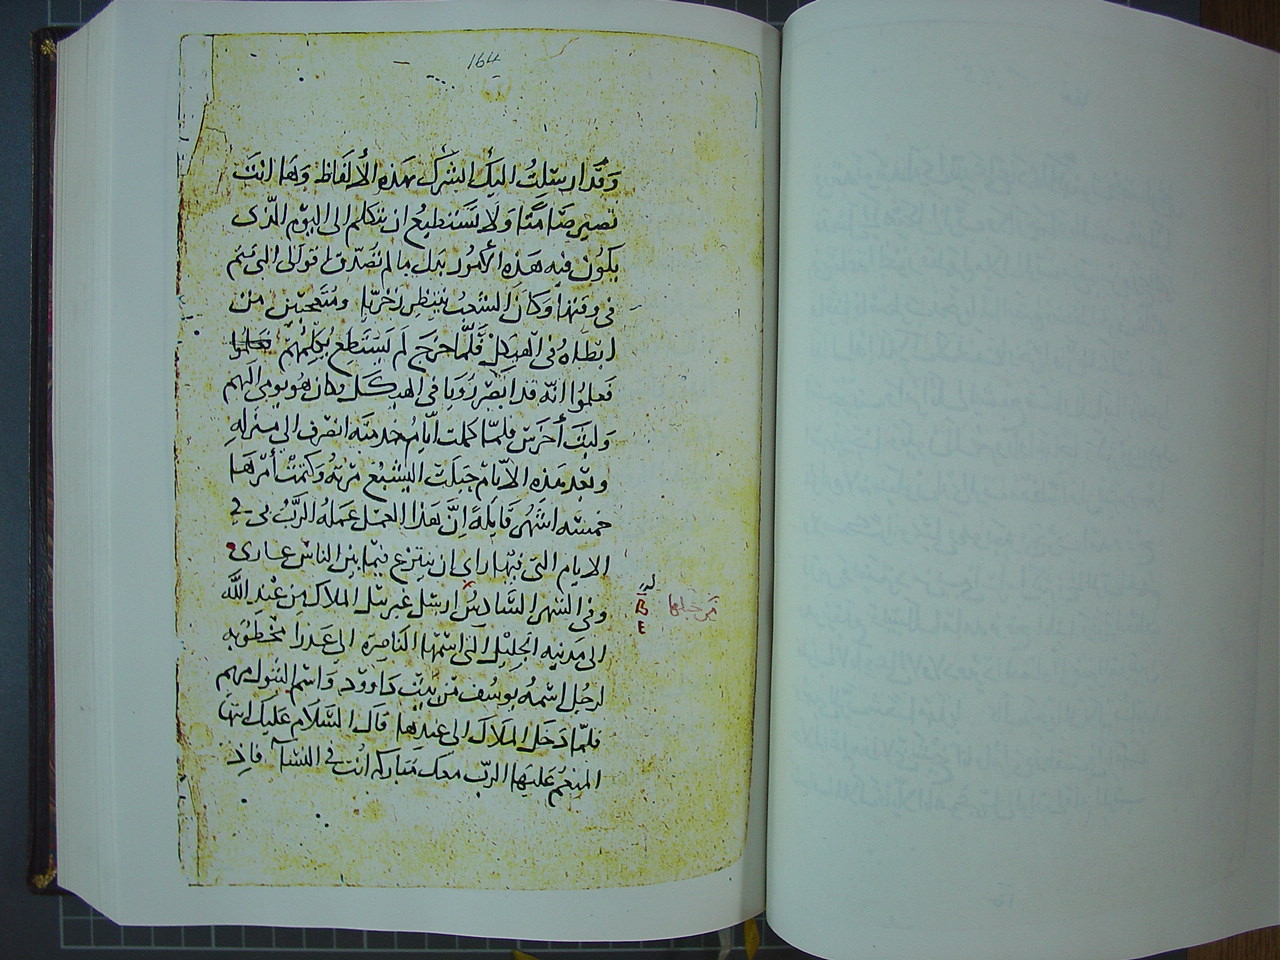 164
وَقَد ارسِلتُ اليكَ ابشرك بهَذهِ الأَلفَاظ وَهَا انتَ
تصير صَامتًا وَلَا تَستَطيعُ ان تتكلم الى اليَوم الذى
يكوُن فيه هَذهِ الأمور بدل ما لم تصَدّق اقوالى التى تتم
فى وقتها وَكانَ الشعبُ ينتظر زخريا ومُتعجبين من
ابطاهُ فى الهيكل فَلمَّا خرَج لَم يَستَطِع يُكلِمهُم
فَعلموُا انّه قد ابصَر رُويا فى الهيكل وكان هُو يومى اليهم
وَلبثَ أخرَس فلمّا كملت ايّام خدمته انصَرف الى منزله
وبَعْد هَذه الأيّام حَبلَت اليشبَع مرتهُ وَكتمَتْ أمْرهَا
خمسَه اشهُر قايلةً انَّ هَذا العمل عمَلهُ الربّ بى فى
الايام التى فيهَا راى ان ينزع فيما بين الناس عارى
وفى الشهر السَّادسُ ارسِل غبريَل الملاك مِن عْندِ الله
الى مَدينه الجليْل التى اسْمهَا النَاصِرَه الى عَذرا مخطوُبه
لرجل اسمهُ يوسُف من بَيْت دَاووُد وَاسم البتول مريم
فلمّا دَخل الملَاك الى عندهَا قالَ السّلَام عَليك ايتها
المنعم عَليهَا الربّ معك مَباركه انت فى النسَآ فاذ